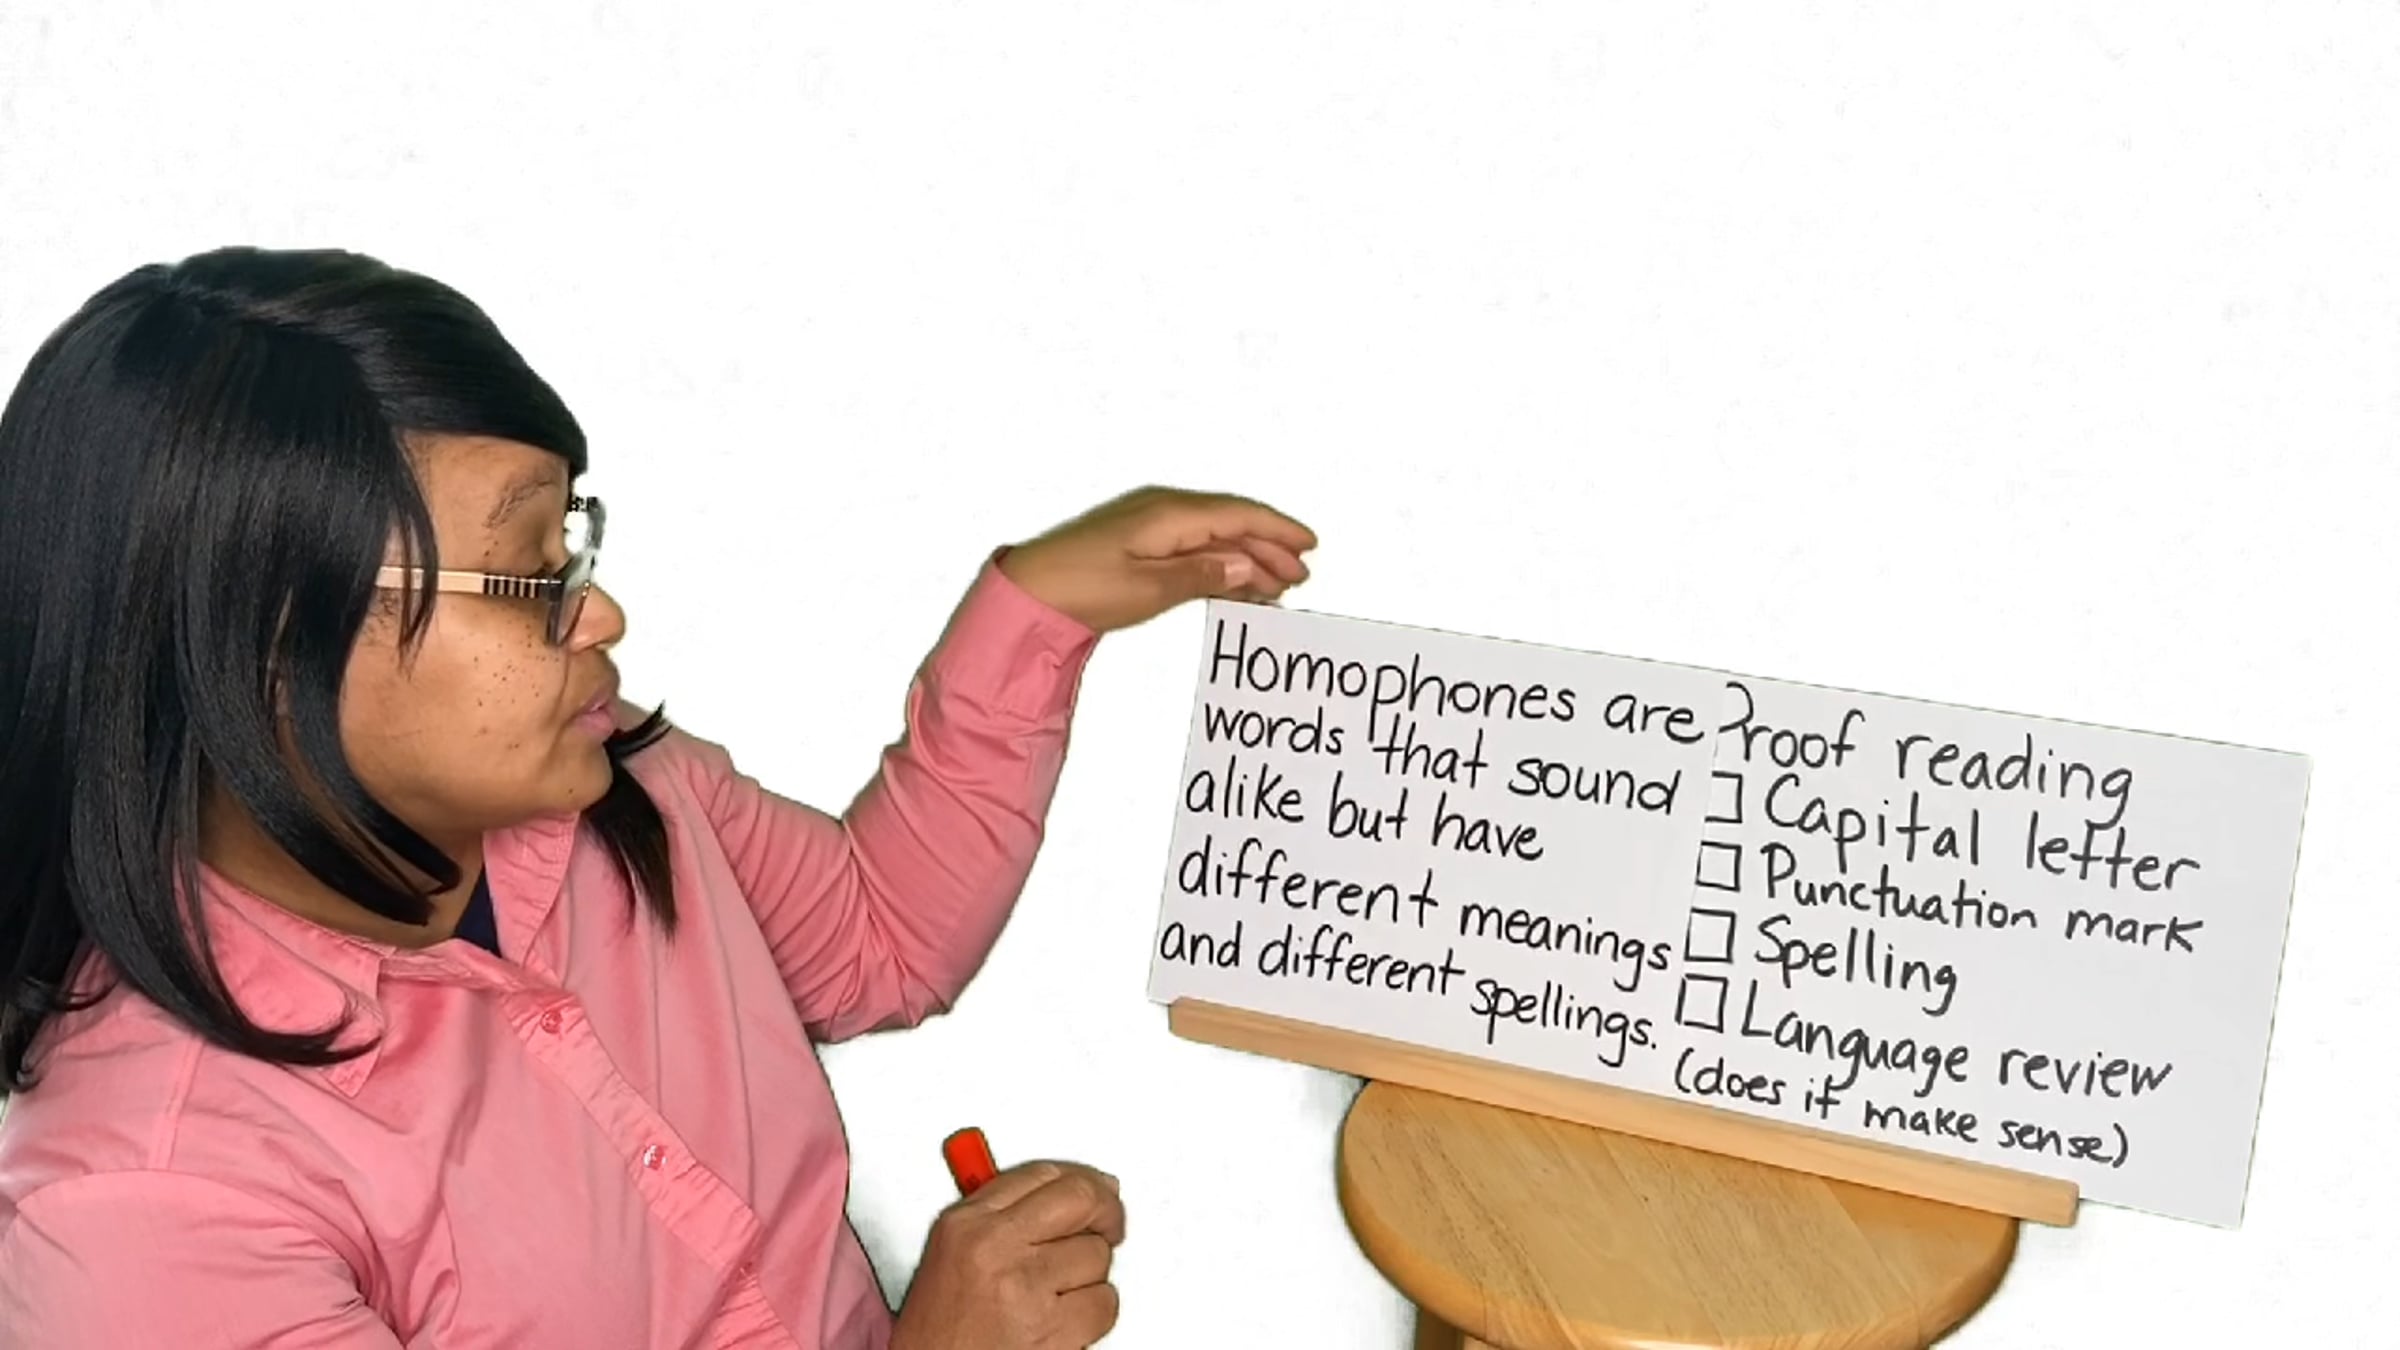 Homophones are
words that sound
alike but have
different meanings
and different spellings.
Proof reading
☐ Capital letter
☐ Punctuation mark
☐ Spelling
☐ Language review
(does it make sense)